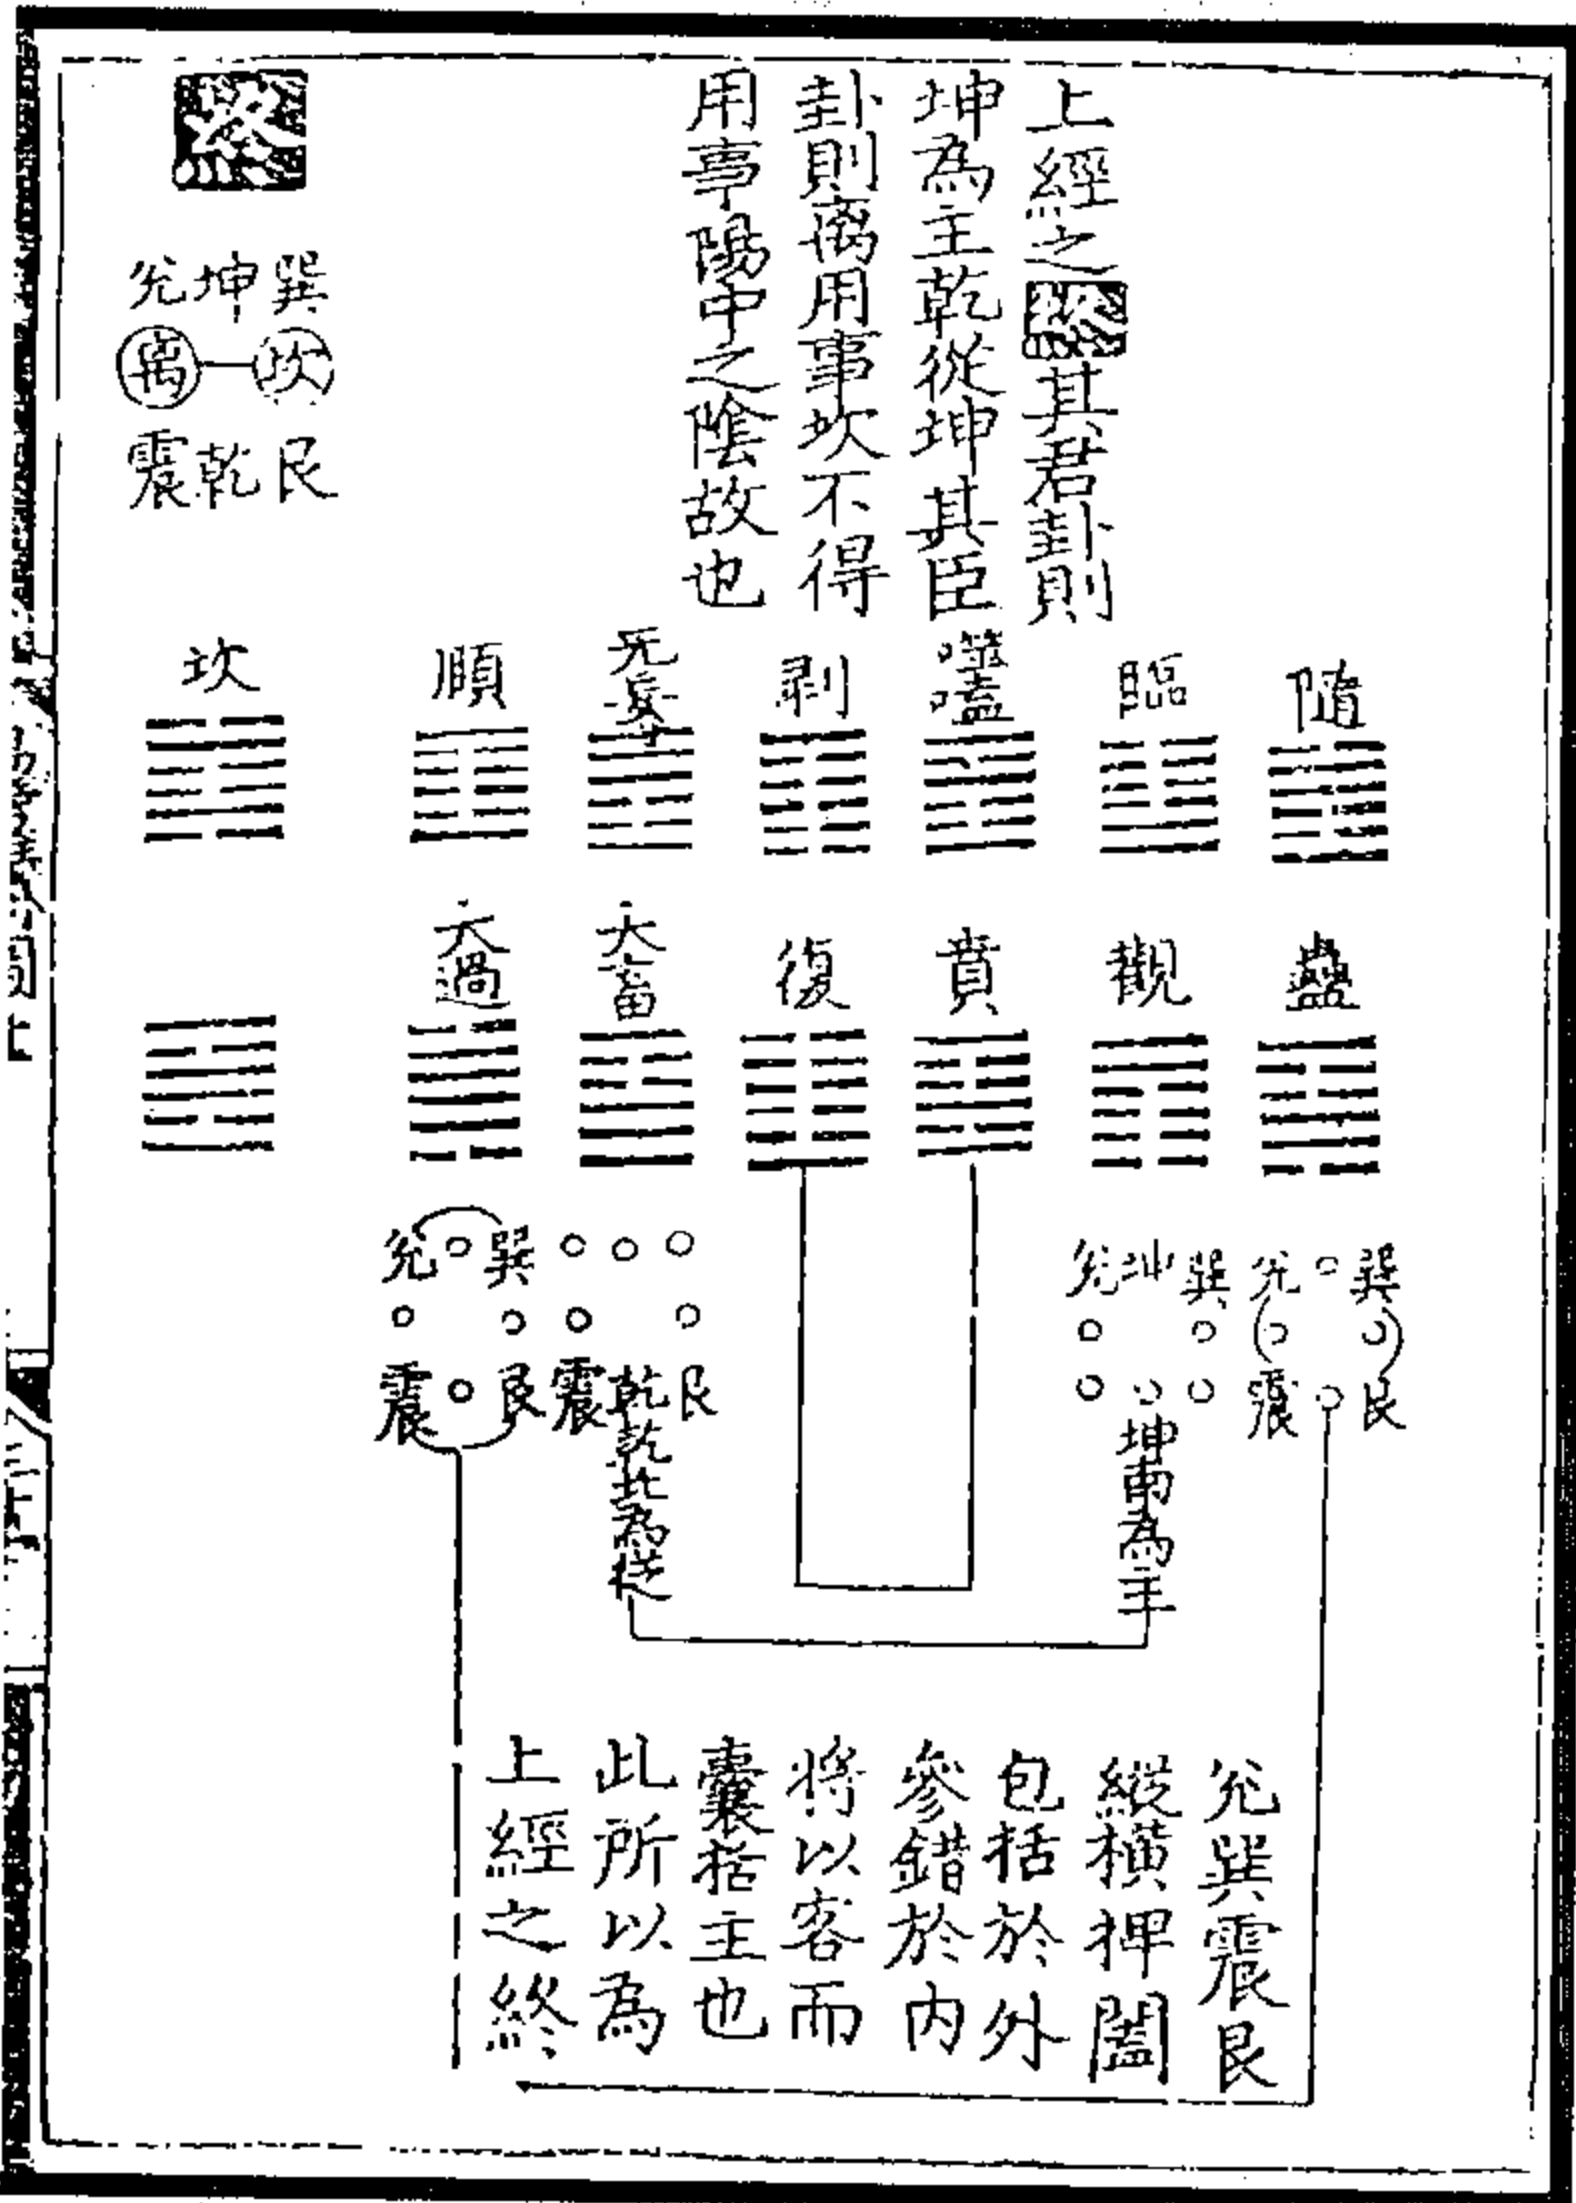 上經之終其君卦則
坤為主乾從坤其臣
卦則离用事坎不得
用事陽中之陰故也
終
巽
坤
兌
坎
离
艮
乾
震
隨
臨
噬嗑
剥
无妄
順
坎
蠱
觀
賁
復
大畜
大過
巽
兌
艮
震
巽
坤
兌
坤南為主
艮
乾
震
乾北為從
巽
兌
艮
震
兌巽震艮
縱橫捭闔
包括於外
參錯於內
將以客而
囊括主也
此所以為
上經之終